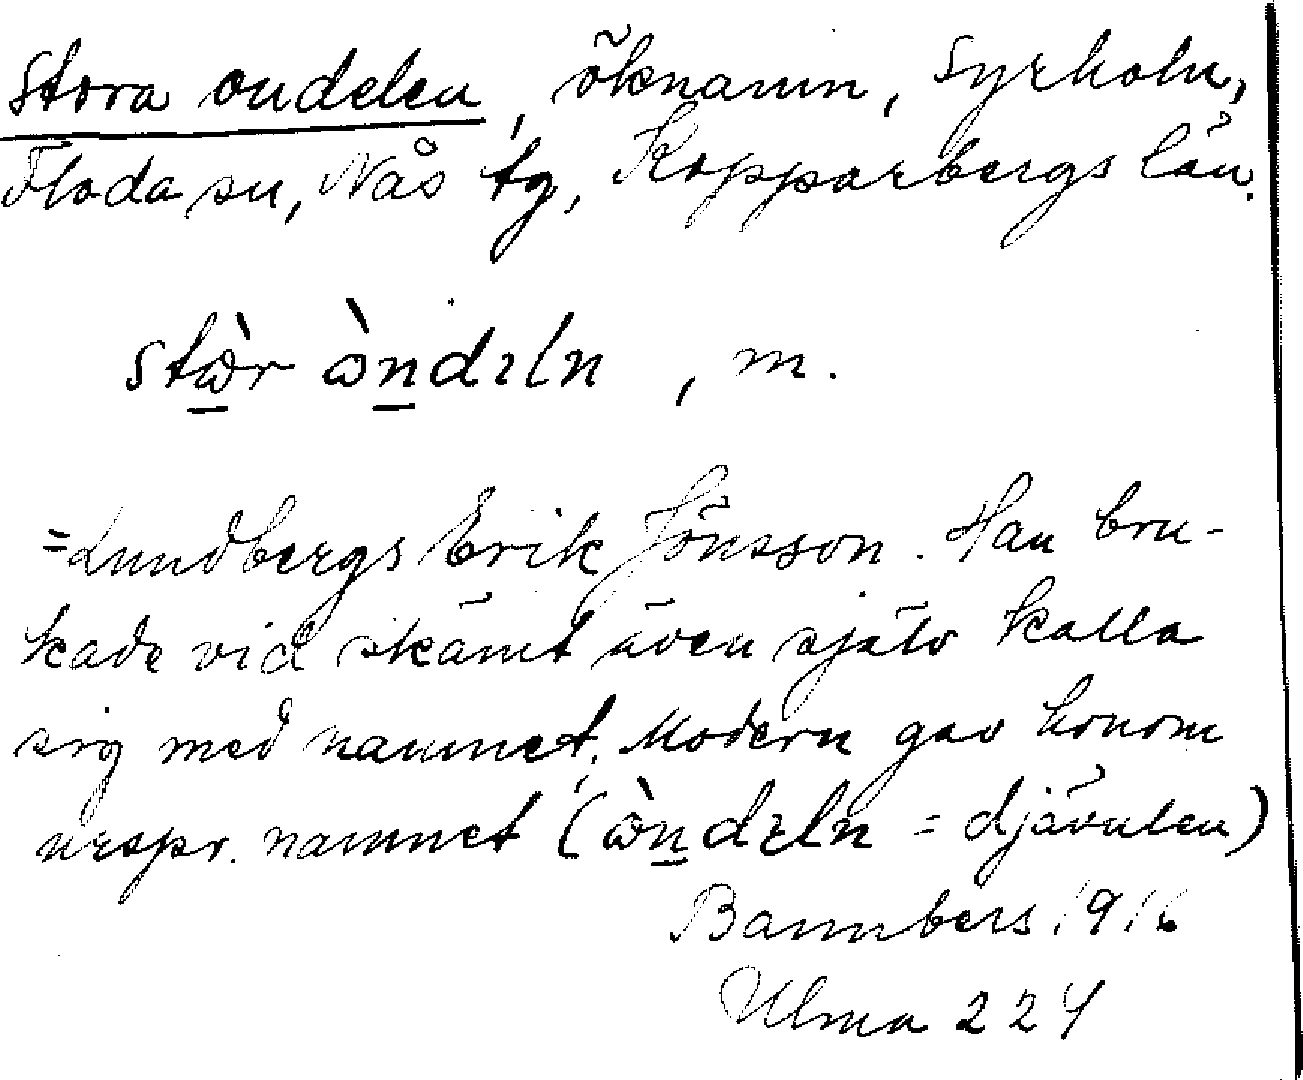 Stora ondelen, öknamn, Syrholn,
Floda sn, Nås tg, Kopparbergs län.
stὼr ὼndɩln, m.
= Lundbergs Erik Jönsson. Han bru-
kade vid skämt även själv kalla
sig med namnet. Modern gav honom
urspr. namnet (ὼndɩln = djävulen)
Bannbers 1916
Ulma 224